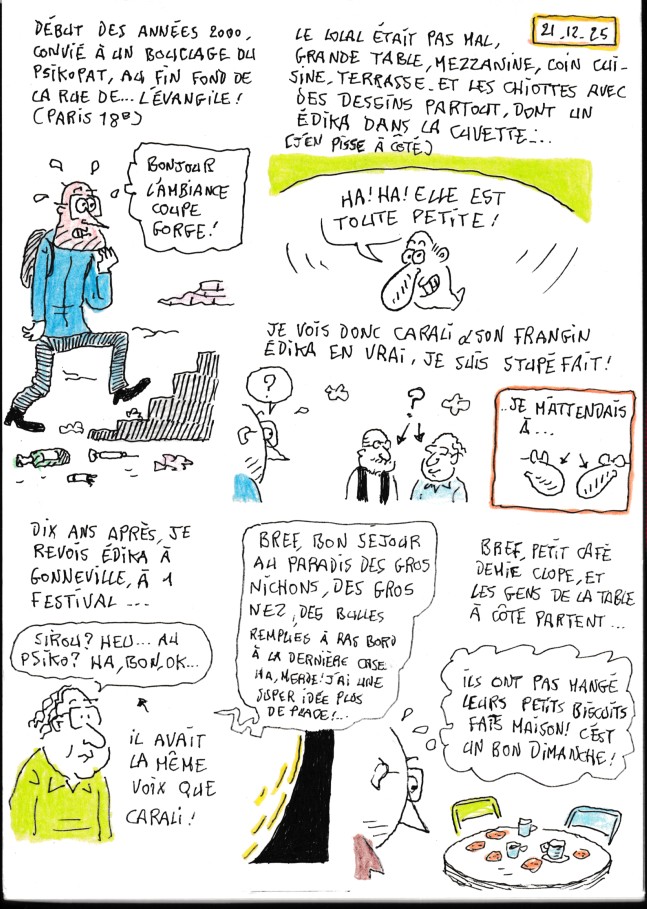 DÉBUT DES ANNÉES 2000,
CONVIÉ À UN BOUCLAGE DU
PSIKOPAT, AU FIN FOND DE
LA RUE DE... L'ÉVANGILE!
(PARIS 18e)
BONJOUR
L'AMBIANCE
COUPE
GORGE!
21.12.25
LE LOCAL ÉTAIT PAS MAL,
GRANDE TABLE, MEZZANINE, COIN CUI-
SINE, TERRASSE. ET LES CHIOTTES AVEC
DES DESSINS PARTOUT, DONT UN
ÉDIKA DANS LA CUVETTE...
(J'EN PISSE À CÔTÉ)
HA! HA! ELLE EST
TOUTE PETITE!
JE VOIS DONC CARALI & SON FRANGIN
ÉDIKA EN VRAI, JE SUIS STUPÉFAIT!
?
?
..JE M'ATTENDAIS
À...
DIX ANS APRÈS, JE
REVOIS ÉDIKA À
GONNEVILLE, À 1
FESTIVAL...
SIROU? HEU... AU
PSIKO? HA, BON, OK...
IL AVAIT
LA MÊME
VOIX QUE
CARALI!
BREF, BON SÉJOUR
AU PARADIS DES GROS
NICHONS, DES GROS
NEZ, DES BULLES
REMPLIES À RAS BORD
À LA DERNIÈRE CASE
HA, MERDE! J'AI UNE
SUPER IDÉE PLUS
DE PLACE!...
BREF, PETIT CAFÉ
DEMIE CLOPE, ET
LES GENS DE LA TABLE
À CÔTÉ PARTENT...
ILS ONT PAS MANGÉ
LEURS PETITS BISCUITS
FAITS MAISON! C'EST
UN BON DIMANCHE!